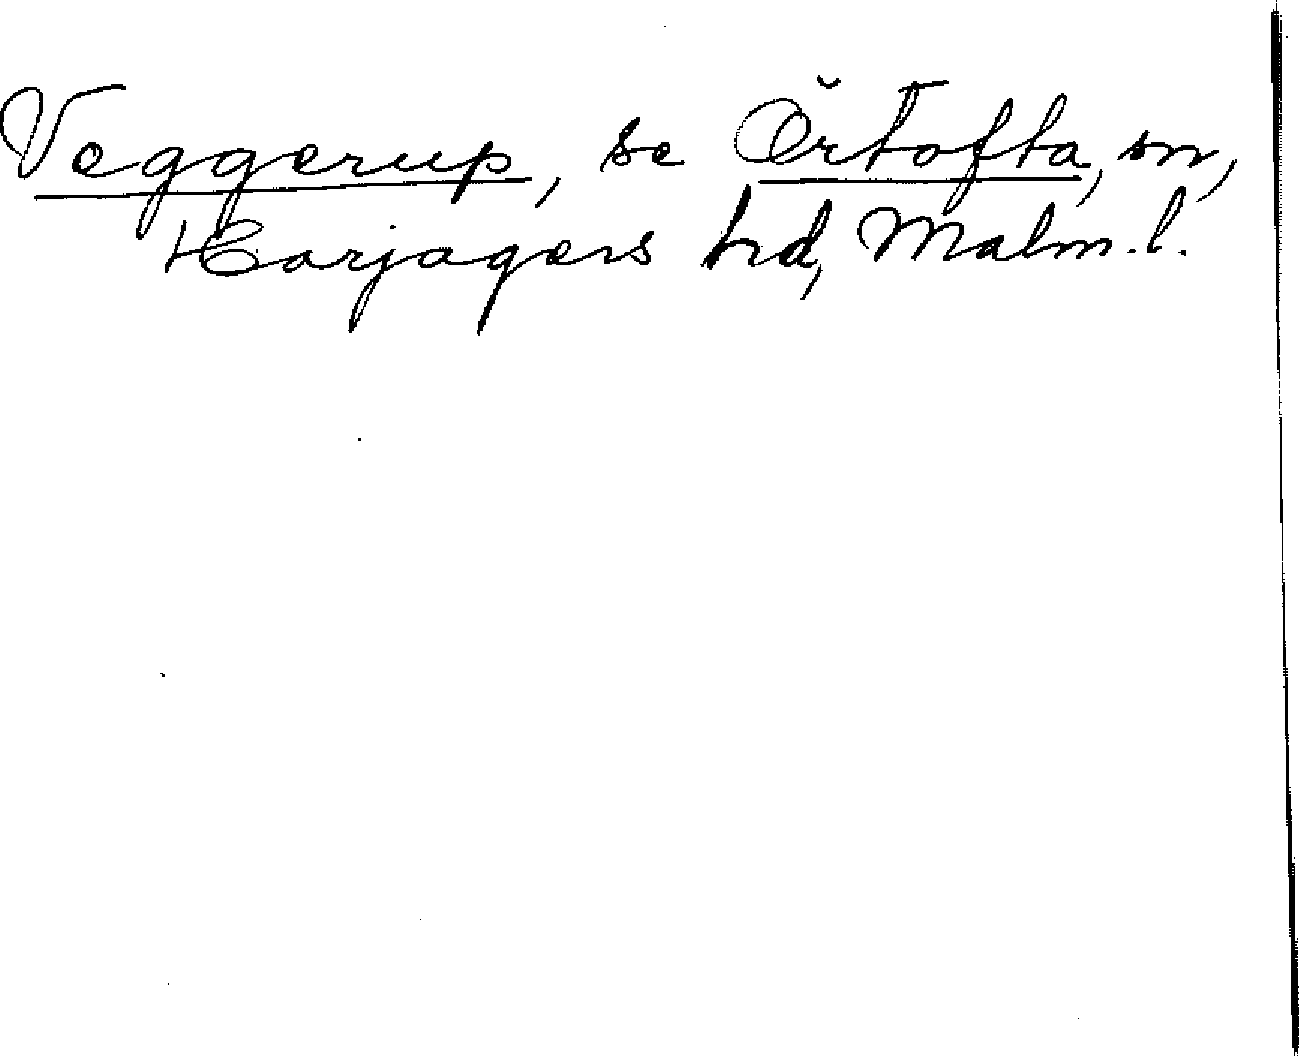 Veggerup, se Örtofta, sn,
Harjagers hd, Malm. l.